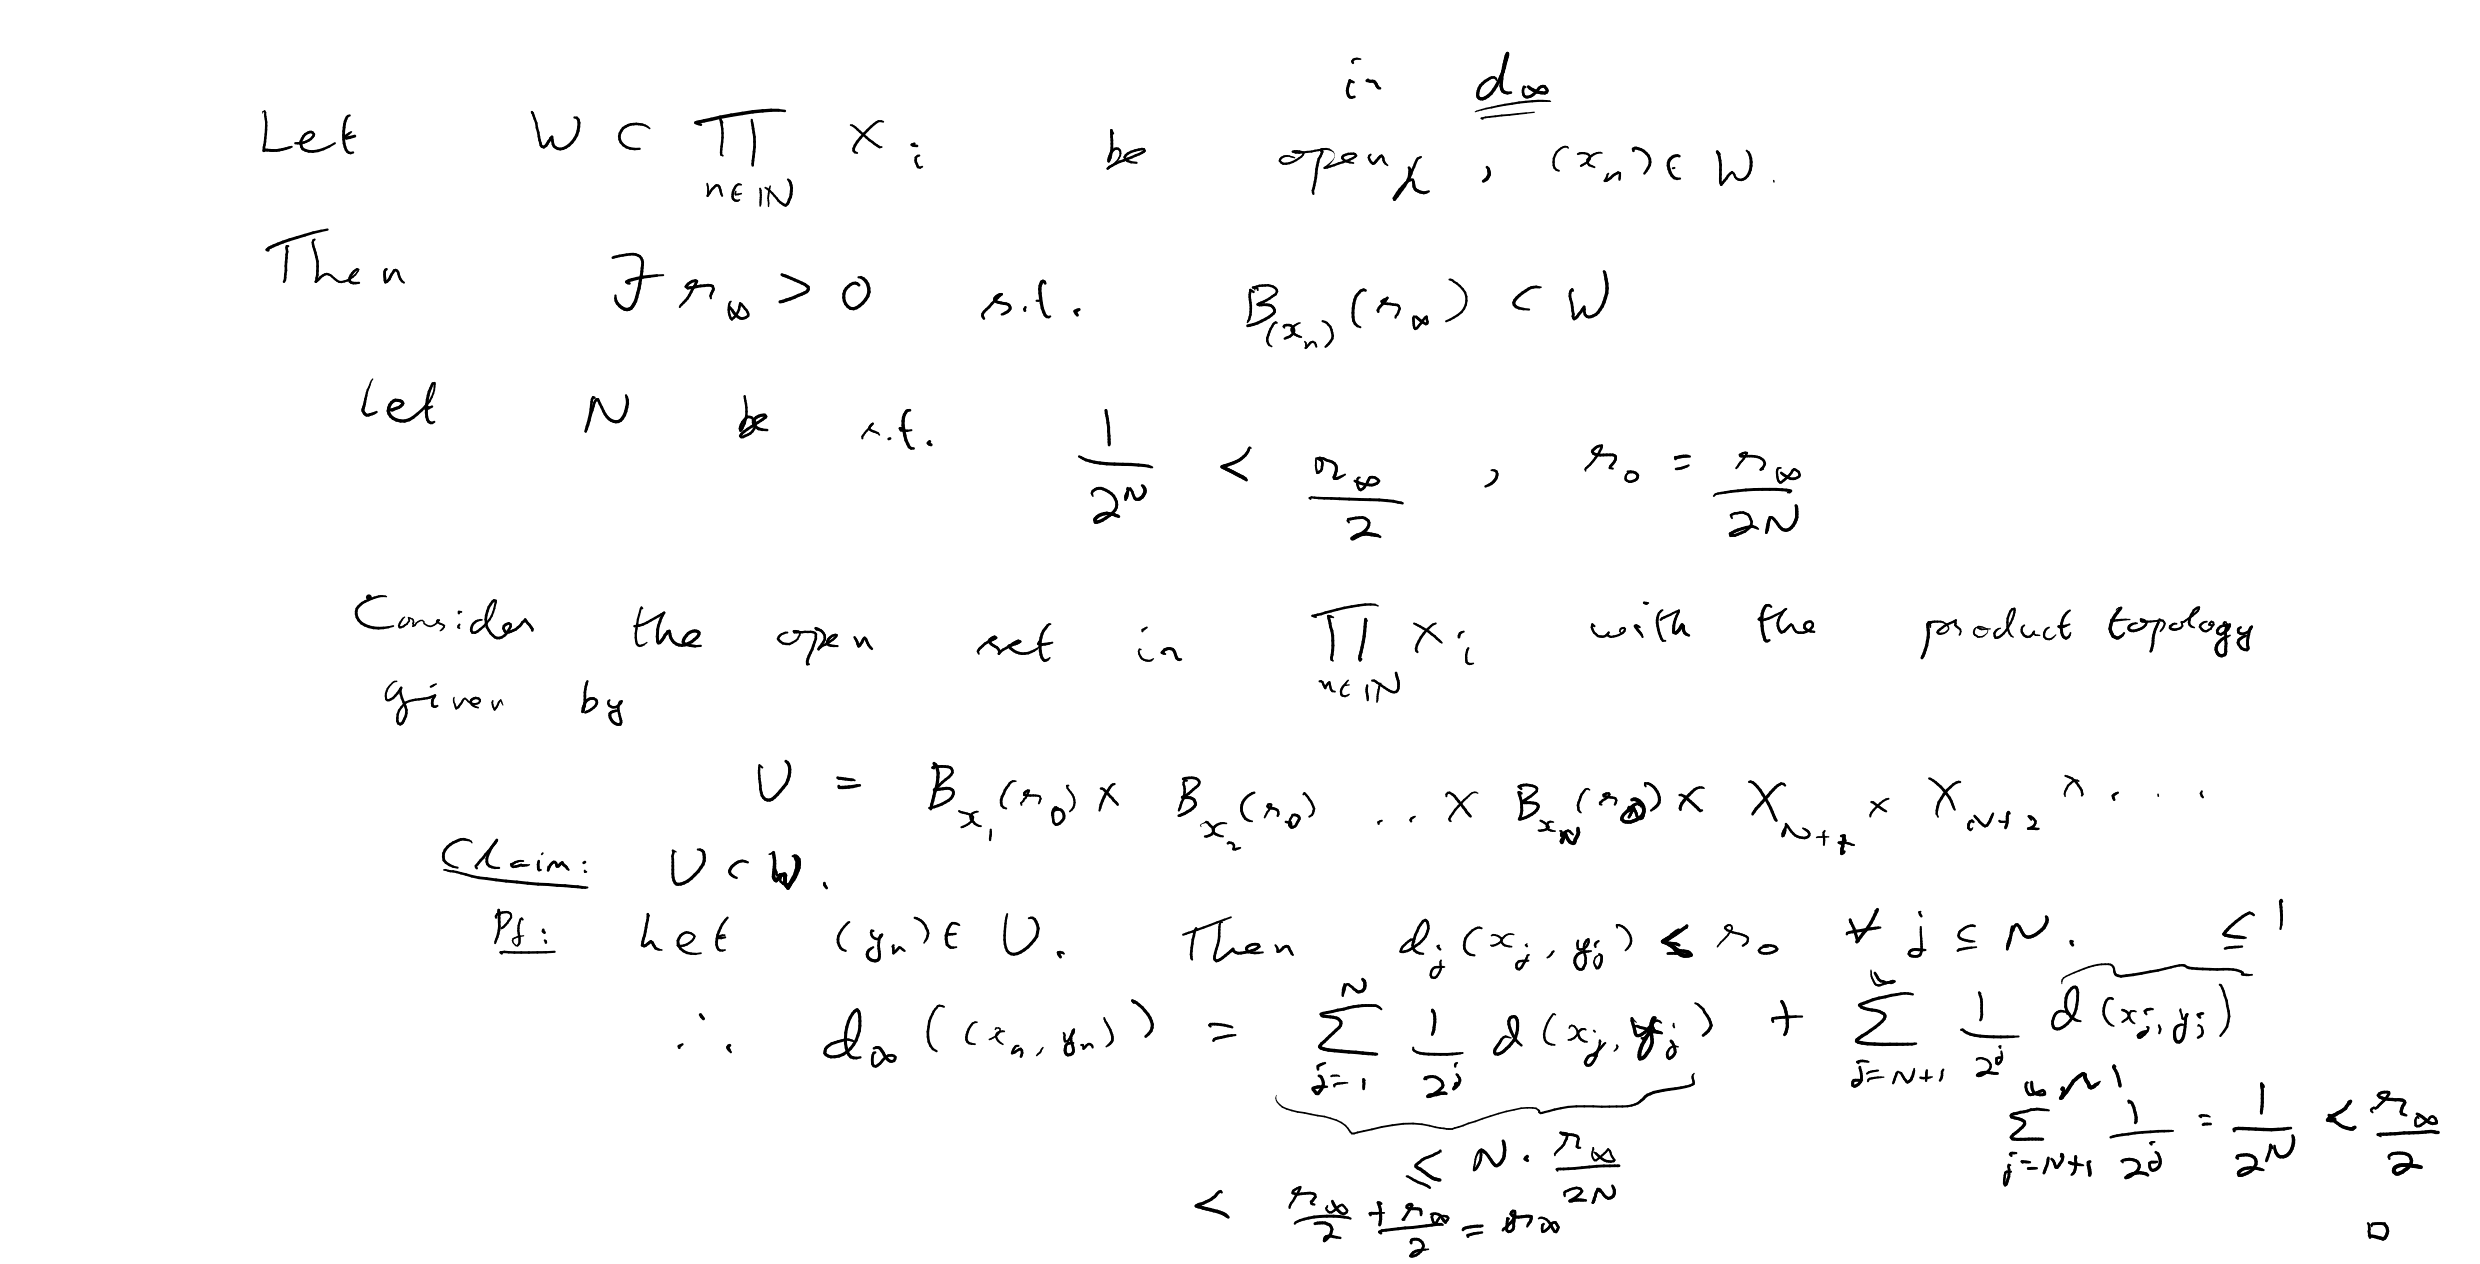 Let W ⊂ ∏_{n∈ℕ} X_i be open in d_∞, (x_n) ∈ W.
Then ∃ r_∞ > 0 s.t. B_{(x_n)}(r_∞) ⊂ W
Let N be s.t. 1/2^N < r_∞/2, r_0 = r_∞/2N
Consider the open set in ∏_{n∈ℕ} X_i with the product topology
given by
U = B_{x_1}(r_0) × B_{x_2}(r_0) .. × B_{x_N}(r_0) × X_{N+1} × X_{N+2} × ....
Claim: U ⊂ W.
Pf: Let (y_n) ∈ U. Then d_j(x_j, y_j) ≤ r_0 ∀ j ≤ N. ≤ 1
∴ d_∞((x_n, y_n)) = ∑_{j=1}^{N} 1/2^j d(x_j, y_j) + ∑_{j=N+1}^{∞} 1/2^j d(x_j, y_j)
≤ N · r_∞/2N
∑_{j=N+1}^{∞} 1/2^j = 1/2^N < r_∞/2
< r_∞/2 + r_∞/2 = r_∞ □